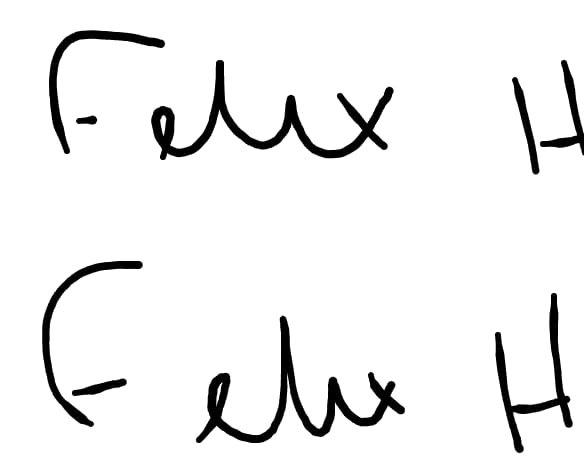 Felix H
Felix H